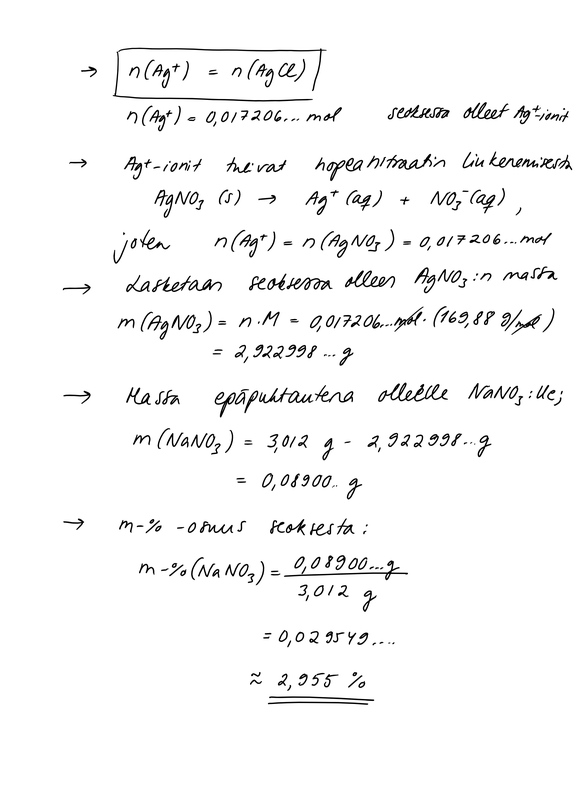 → n(Ag⁺) = n(AgCl)
n(Ag⁺) = 0,017206... mol seoksessa olleet Ag⁺-ionit
→ Ag⁺-ionit tulivat hopeanitraatin liukenemisesta
AgNO₃ (s) → Ag⁺ (aq) + NO₃⁻ (aq) ,
joten n(Ag⁺) = n(AgNO₃) = 0,017206...mol
→ Lasketaan seoksessa olleen AgNO₃:n massa
m(AgNO₃) = n·M = 0,017206...mol·(169,88 g/mol)
= 2,922998...g
→ Massa epäpuhtautena olleelle NaNO₃:lle;
m(NaNO₃) = 3,012 g - 2,922998...g
= 0,08900.. g
→ m-% -osuus seoksesta:
m-%(NaNO₃) = 0,08900...g
3,012 g
= 0,029549....
≈ 2,955 %